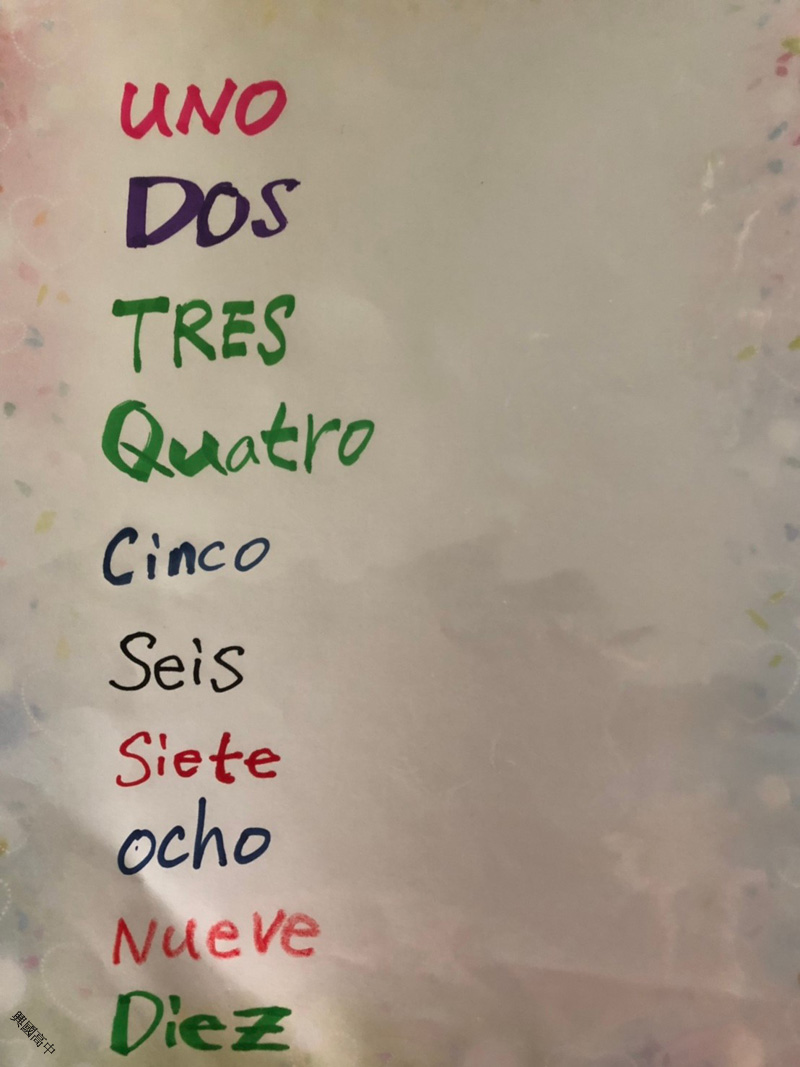 UNO
DOS
TRES
Quatro
Cinco
Seis
Siete
ocho
Nueve
Diez
興國高中